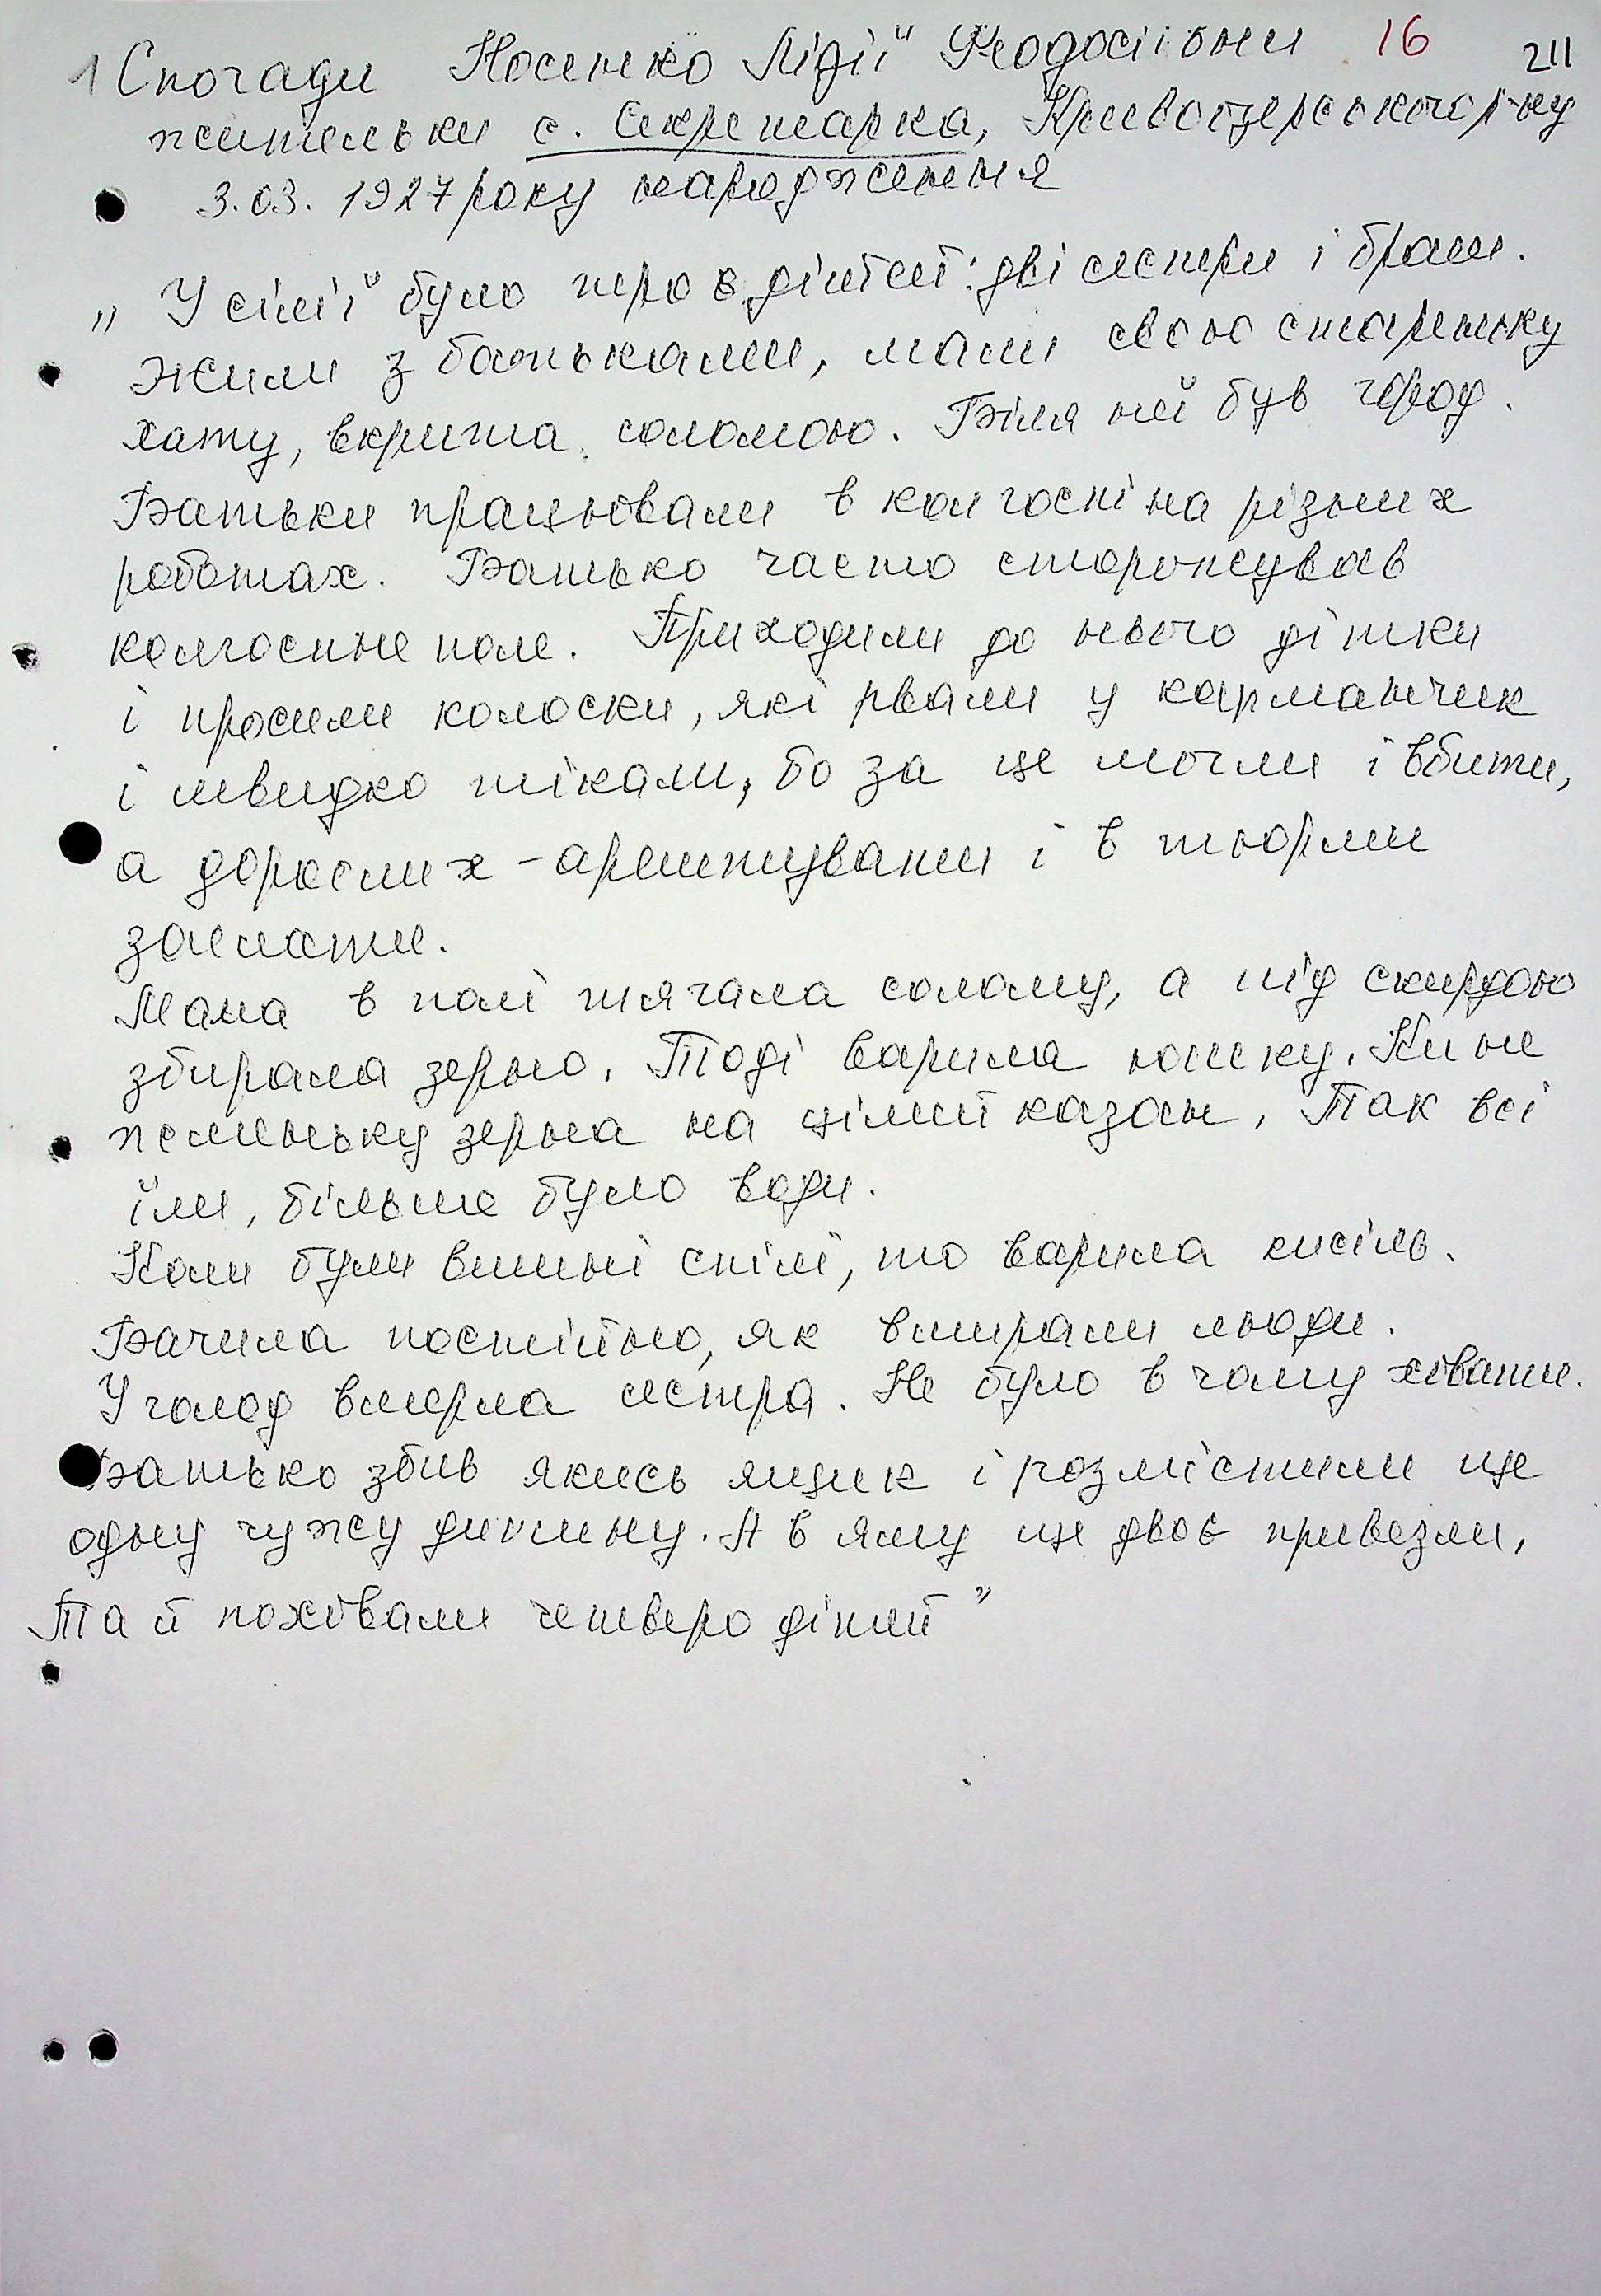 1 Спогади Носенко Лідії Феодосіївни 16 211
жительки с. Секретарка, Кривоозерського р-ну
3.03.1927 року народження
„У сім'ї було троє дітей: дві сестри і брат.
Жили з батьками, мали свою стареньку
хату, вкрита соломою. Біля неї був город.
Батьки працювали в колгоспі на різних
роботах. Батько часто сторожував
колгоспне поле. Приходили до нього дітки
і просили колоски, які рвали у карманчик
і швидко тікали, бо за це могли і вбити,
а дорослих - арештувати і в тюрми
заслати.
Мама в полі тягала солому, а під скирдою
збирала зерно. Тоді варила юшку. Кине
жменьку зерна на цілий казан, Так всі
їли, більше було води.
Коли були вишні спілі, то варила кисіль.
Бачила постійно, як вмирали люди.
У голод вмерла сестра. Не було в чому ховати.
Батько збив якись ящик і розмістили ще
одну чужу дитину. А в яму ще двоє привезли,
Та й поховали четверо дітей”